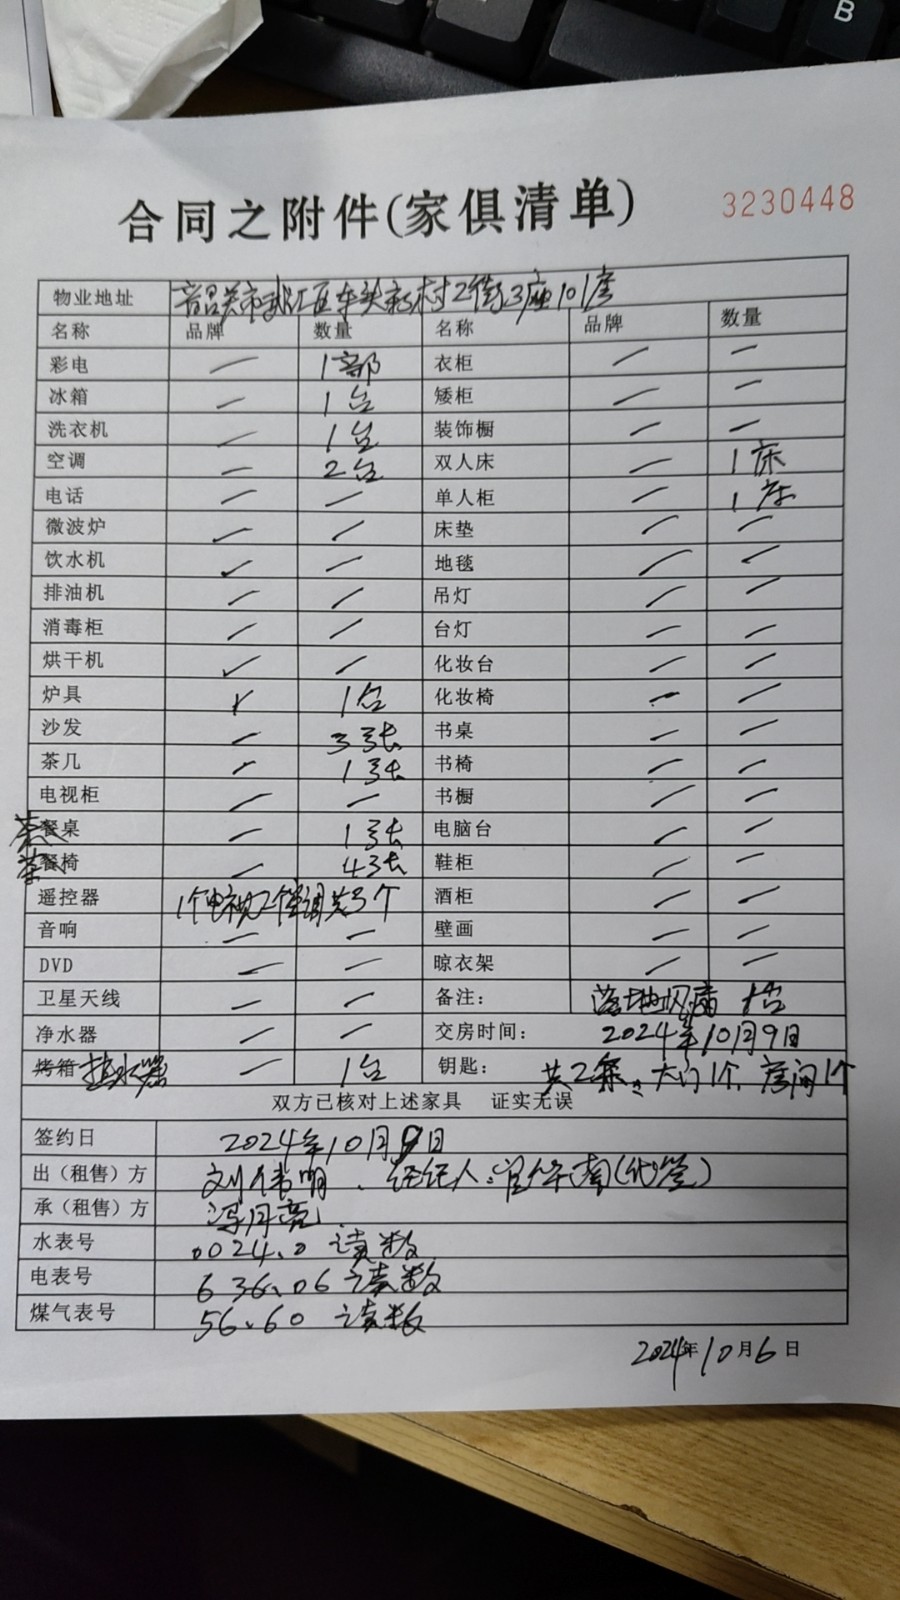 B
合同之附件(家俱清单) 3230448
物业地址 韶关市武江区车头新村2街3座101房
名称 品牌 数量 名称 品牌 数量
彩电 — 1部 衣柜 — —
冰箱 — 1台 矮柜 — —
洗衣机 — 1台 装饰橱 — —
空调 — 2台 双人床 — 1床
电话 — — 单人柜 — 1床
微波炉 — — 床垫 — —
饮水机 — — 地毯 — —
排油机 — — 吊灯 — —
消毒柜 — — 台灯 — —
烘干机 — — 化妆台 — —
炉具 — 1台 化妆椅 — —
沙发 — 3张 书桌 — —
茶几 — 1张 书椅 — —
电视柜 — — 书橱 — —
餐桌 — 1张 电脑台 — —
餐椅 — 4张 鞋柜 — —
遥控器 1个电视2个空调共3个 酒柜 — —
音响 — — 壁画 — —
DVD — — 晾衣架 — —
卫星天线 — — 备注: 落地风扇 1台
净水器 — — 交房时间: 2024年10月9日
烤箱 热水器 — 1台 钥匙: 共2条 大门1个、房间1个
双方已核对上述家具 证实无误
签约日 2024年10月9日
出(租售)方 刘伟明、经纪人:
承(租售)方
水表号 0024.0 读数
电表号 636.06 读数
煤气表号 56.60 读数
2024年10月6日